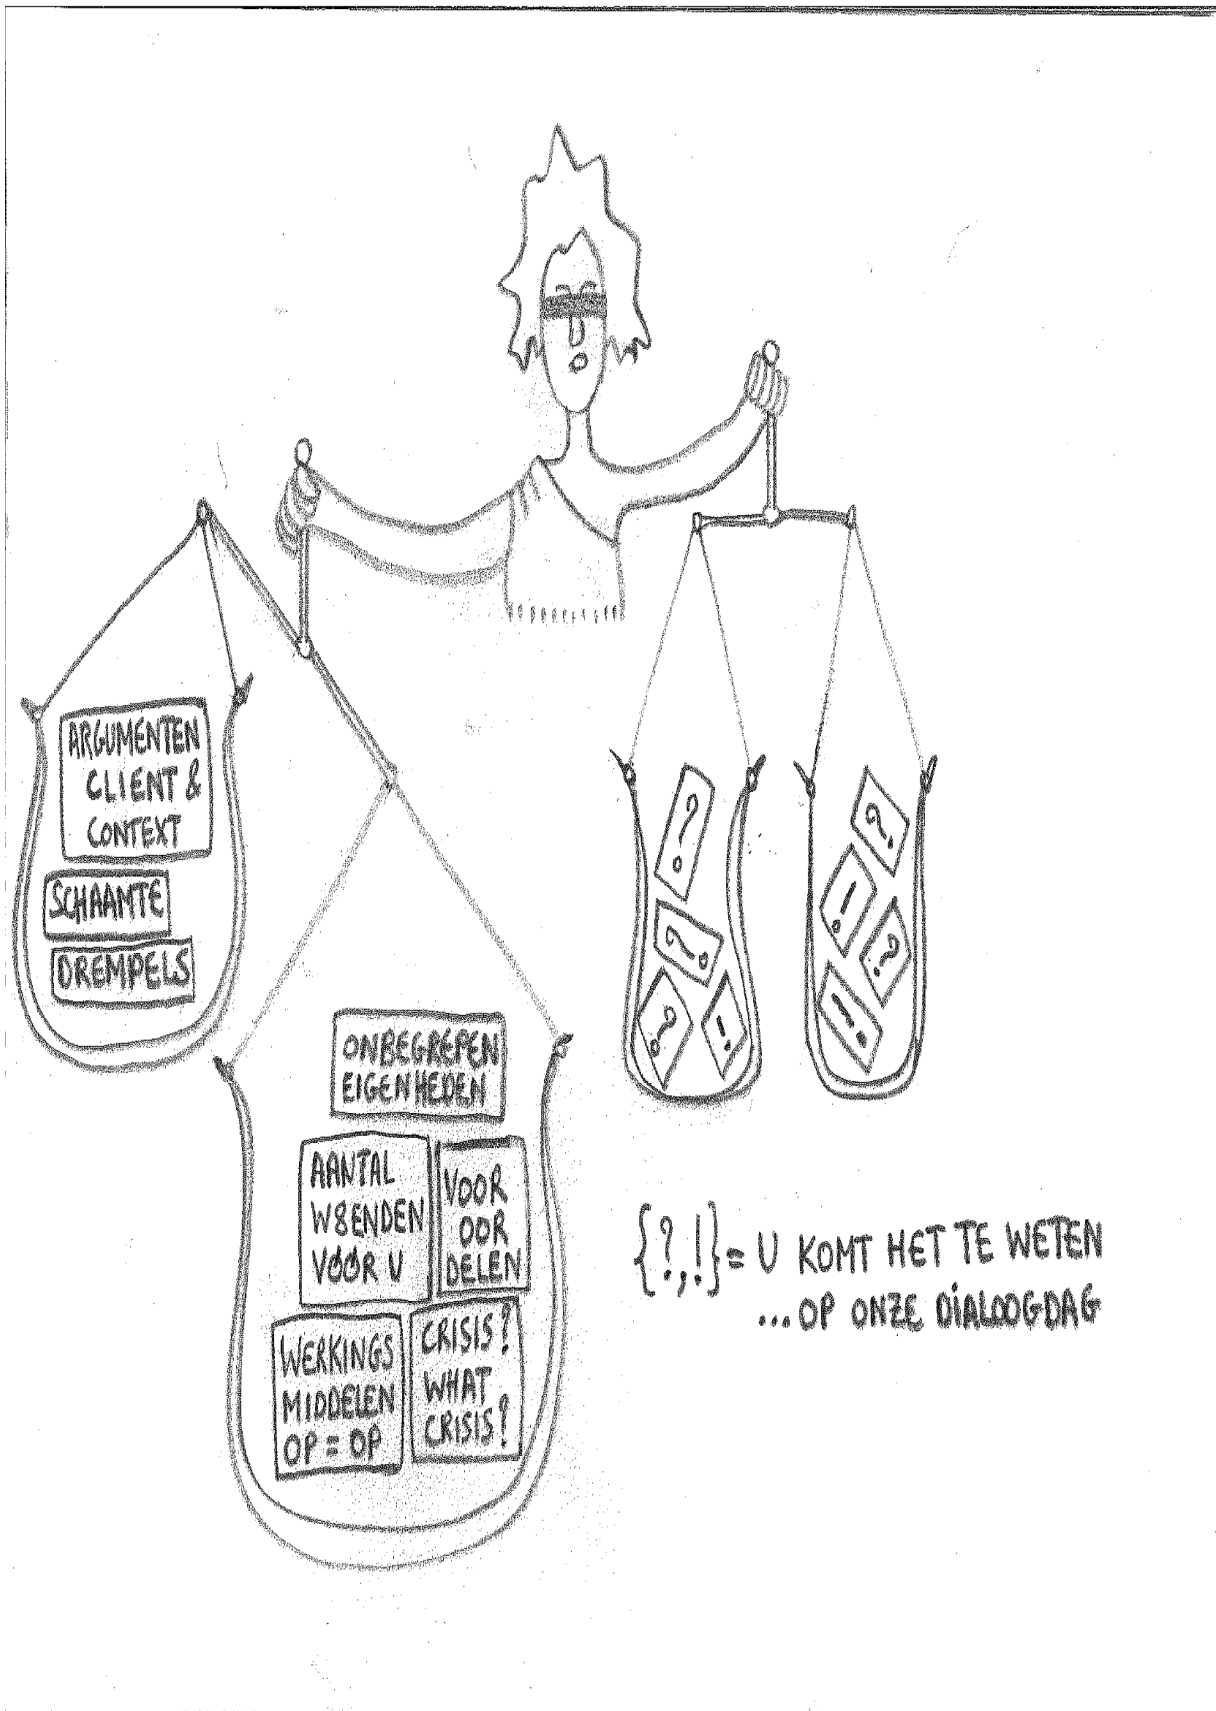 ARGUMENTEN
CLIENT &
CONTEXT
SCHAAMTE
DREMPELS
ONBEGREPEN
EIGENHEDEN
AANTAL
W8ENDEN
VÓÓR U
VOOR
OOR
DELEN
WERKINGS
MIDDELEN
OP = OP
CRISIS?
WHAT
CRISIS?
?
?
?
!
?
!
?
!
{?,!} = U KOMT HET TE WETEN
... OP ONZE DIALOOGDAG